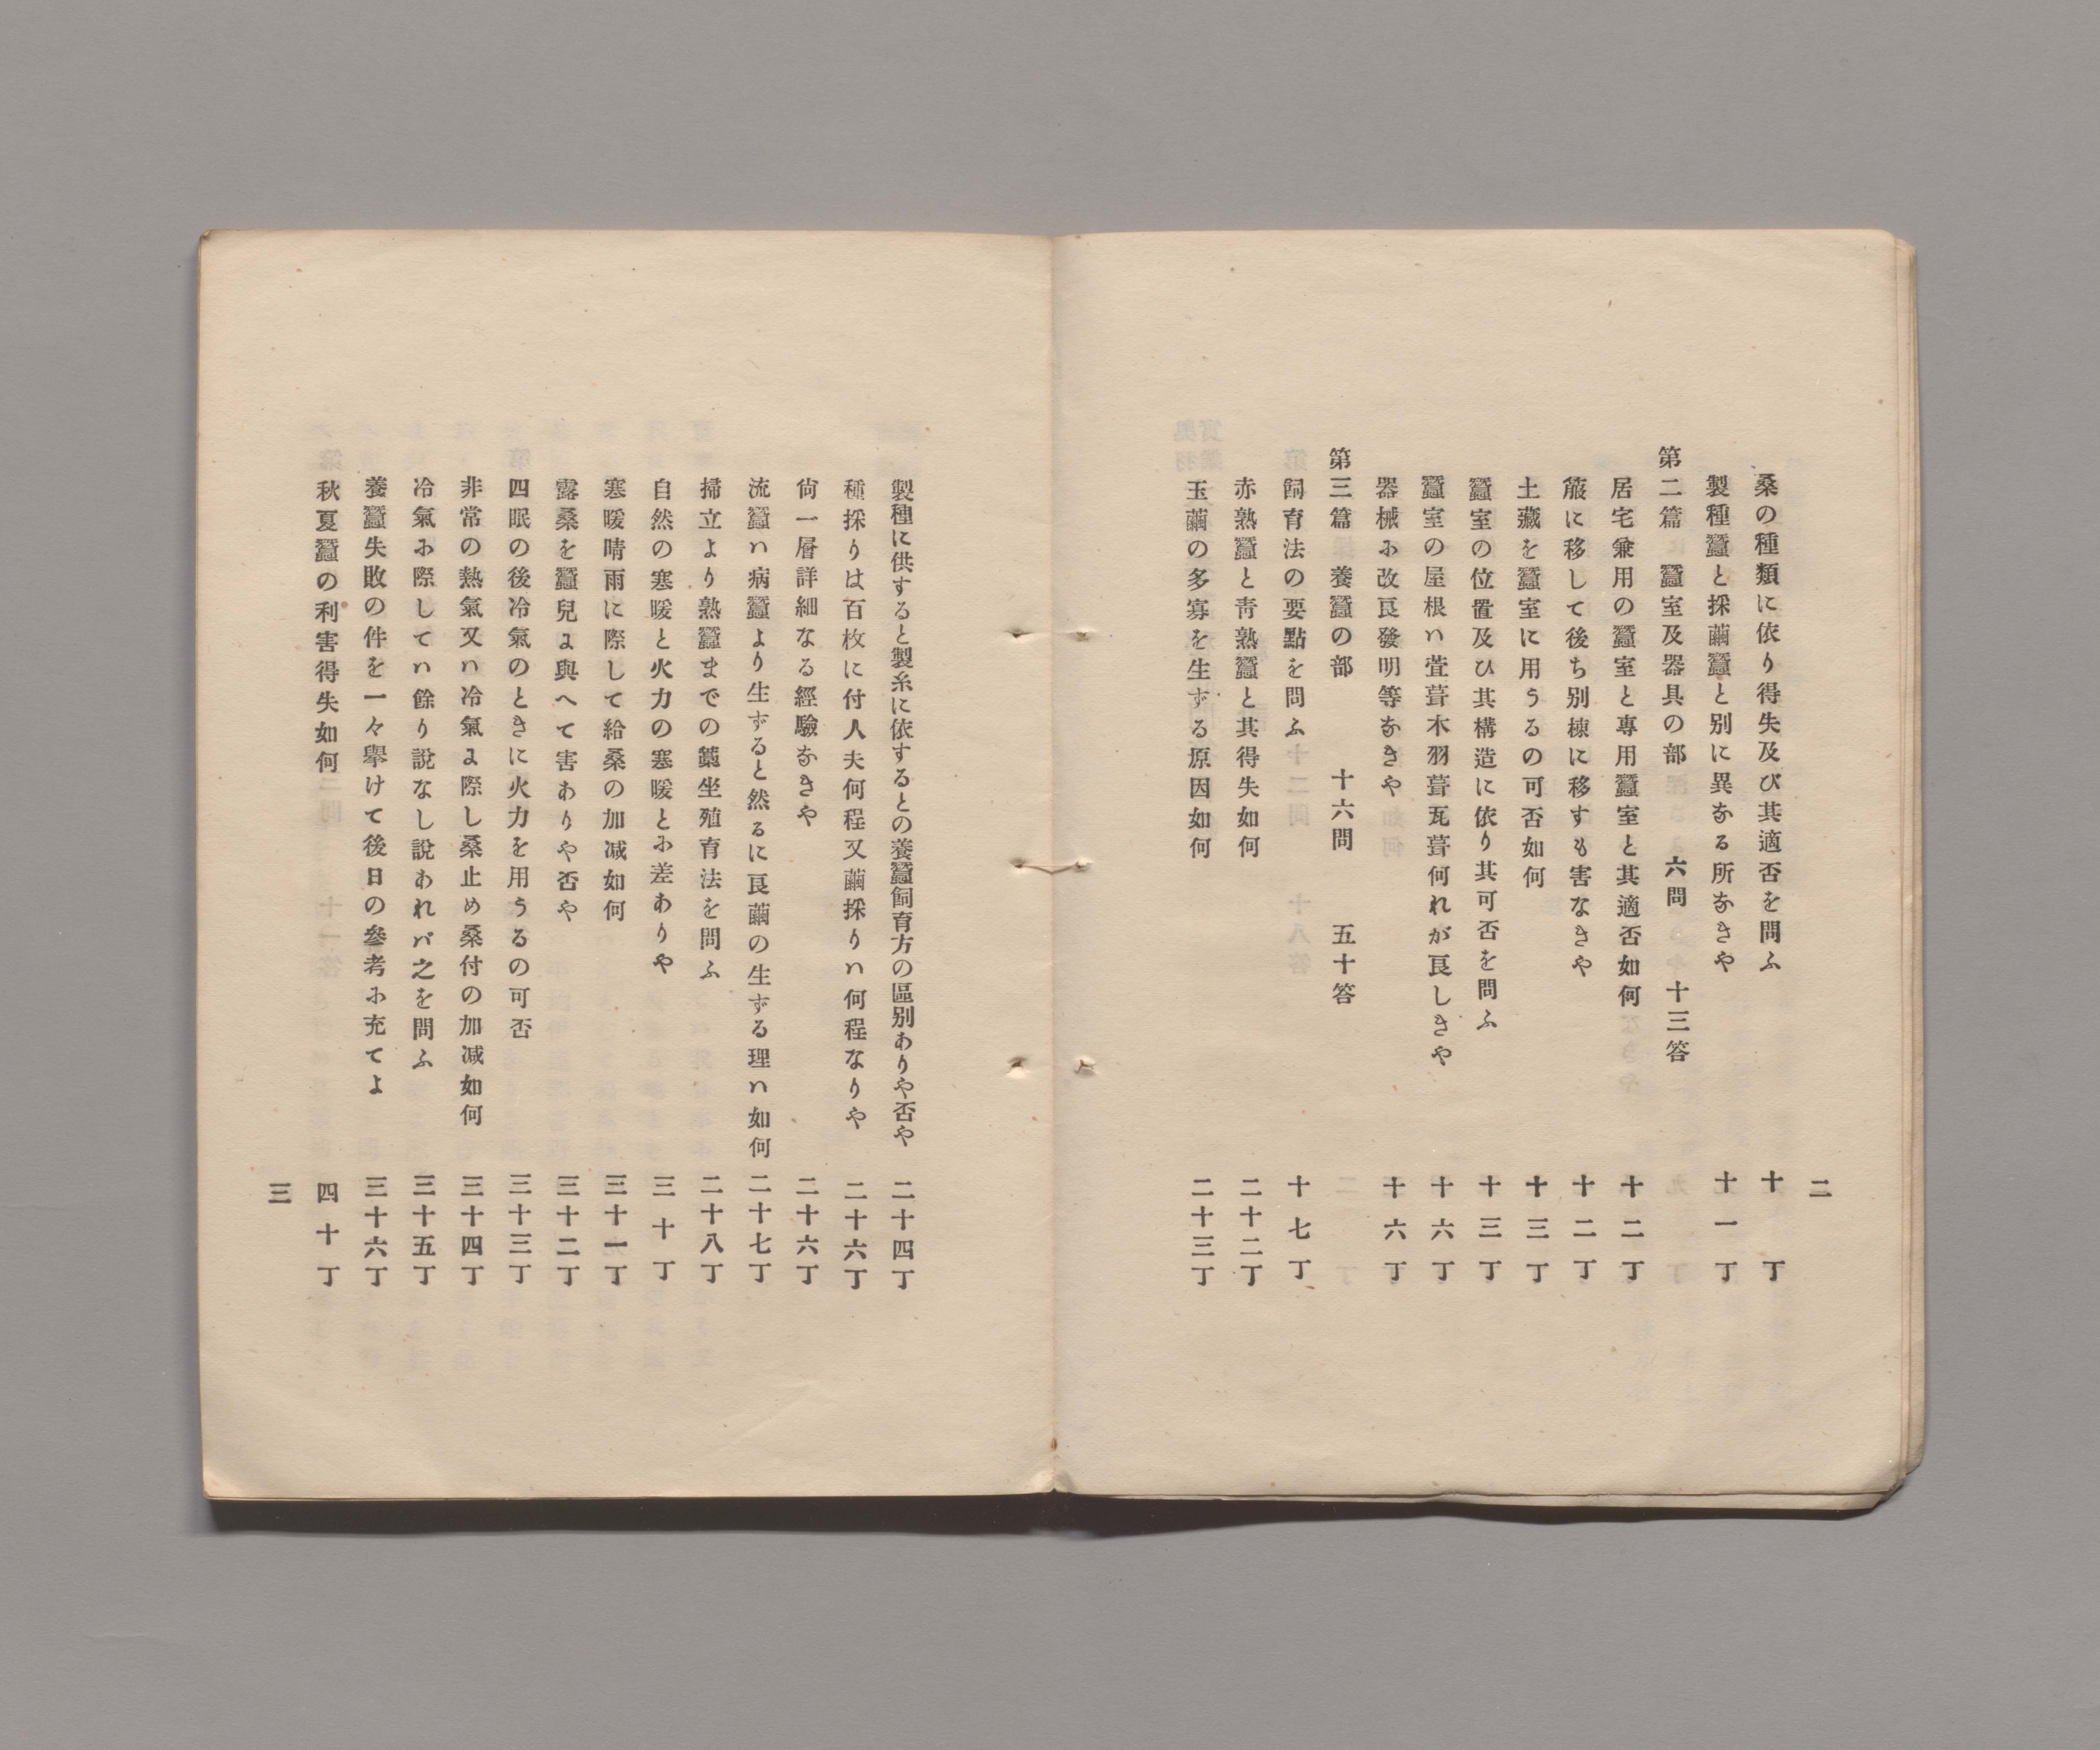 二
桑の種類に依り得失及び其適否を問ふ 十丁
製種蠶と採繭蠶と別に異なる所なきや 十一丁
第二篇 蠶室及器具の部 六問 十三答
居宅兼用の蠶室と專用蠶室と其適否如何 十二丁
簇に移して後ち別棟に移すも害なきや 十二丁
土藏を蠶室に用うるの可否如何 十三丁
蠶室の位置及ひ其構造に依り其可否を問ふ 十三丁
蠶室の屋根ハ萱葺木羽葺瓦葺何れが良しきや 十六丁
器械に改良發明等なきや 十六丁
第三篇 養蠶の部 十六問 五十答
飼育法の要點を問ふ 十七丁
赤熟蠶と靑熟蠶と其得失如何 二十二丁
玉繭の多寡を生ずる原因如何 二十三丁
製種に供すると製糸に依するとの養蠶飼育方の區別ありや否や 二十四丁
種採りは百枚に付人夫何程又繭採りハ何程なりや 二十六丁
尙一層詳細なる經驗なきや 二十六丁
流蠶ハ病蠶より生ずると然るに良繭の生ずる理ハ如何 二十七丁
掃立より熟蠶までの蠶坐殖育法を問ふ 二十八丁
自然の寒暖と火力の寒暖とに差ありや 三十丁
寒暖晴雨に際して給桑の加减如何 三十一丁
露桑を蠶兒に與へて害ありや否や 三十二丁
四眠の後冷氣のときに火力を用うるの可否 三十三丁
非常の熱氣又ハ冷氣に際し桑止め桑付の加减如何 三十四丁
冷氣に際してハ餘り說なし說あれバ之を問ふ 三十五丁
養蠶失敗の件を一々擧けて後日の參考に充てよ 三十六丁
秋夏蠶の利害得失如何 四十丁
三